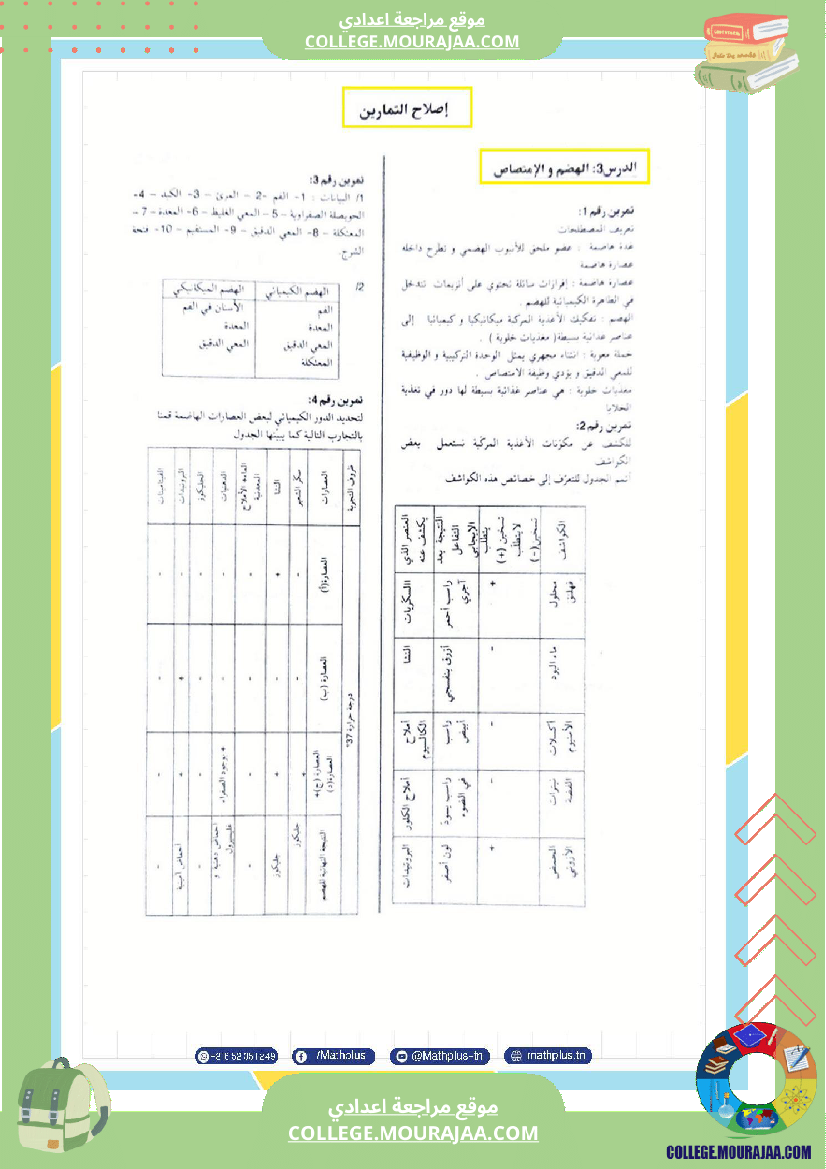 موقع مراجعة اعدادي
COLLEGE.MOURAJAA.COM
إصلاح التمارين
الدرس3: الهضم و الإمتصاص
تمرين رقم 1:
تعريف المصطلحات
غدة هاضمة : عضو ملحق للأنبوب الهضمي و تطرح داخله
عصارة هاضمة
عصارة هاضمة : إفرازات سائلة تحتوي على أنزيمات تتدخل
في الظاهرة الكيميائية للهضم .
الهضم : تفكيك الأغذية المركبة ميكانيكيا و كيميائيا إلى
عناصر غذائية بسيطة( مغذيات خلوية ) .
خملة معوية : انثناء مجهري يمثل الوحدة التركيبية و الوظيفية
للمعي الدقيق و يؤدي وظيفة الامتصاص .
مغذيات خلوية : هي عناصر غذائية بسيطة لها دور في تغذية
الخلايا
تمرين رقم 2:
للكشف عن مكوّنات الأغذية المركّبة نستعمل بعض
الكواشف
أتمم الجدول للتعرّف إلى خصائص هذه الكواشف
الكواشف | محلول فهلنق | ماء اليود | أكسلات الأمنيوم | نيترات الفضة | الحمض الأزوتي
يتطلب تسخين (+) لا يتطلّب تسخين(-) | + | - | - | - | +
النتيجة بعد التفاعل الإيجابي | راسب أحمر آجري | أزرق بنفسجي | راسب أبيض | راسب يسود في الضوء | لون أصفر
العنصر الذي يكشف عنه | السكريات | النشا | أملاح الكالسيوم | أملاح الكلور | البروتيدات
تمرين رقم 3:
1/ البيانات : 1- الفم -2 – المريء – 3- الكبد – 4-
الحويصلة الصفراوية – 5 – المعي الغليظ – 6- المعدة – 7 –
المعثكلة – 8- المعي الدقيق – 9- المستقيم – 10- فتحة
الشرج.
2/
الهضم الكيميائي | الهضم الميكانيكي
الفم | الأسنان في الفم
المعدة | المعدة
المعي الدقيق | المعي الدقيق
المعثكلة
تمرين رقم 4:
لتحديد الدور الكيميائي لبعض العصارات الهاضمة قمنا
بالتجارب التالية كما يبيّنها الجدول
ظروف التجربة | درجة حرارة 37°
العصارات | العصارة(أ) | العصارة (ب) | العصارة (ج)+ العصارة(د) | النتيجة النهائية للهضم
سكر الشعير | - | - | + | جليكوز
النشا | + | - | + | جليكوز
المادة الأملاح المعدنية | - | - | - | -
الدهنيات | - | - | + بوجود الصفراء | أحماض دهنية و غليسيرول
الجليكوز | - | - | - | -
البروتيدات | - | + | + | أحماض أمينية
الفيتامينات | - | - | - | -
/Mathplus
@Mathplus-tn
mathplus.tn
موقع مراجعة اعدادي
COLLEGE.MOURAJAA.COM
COLLEGE.MOURAJAA.COM